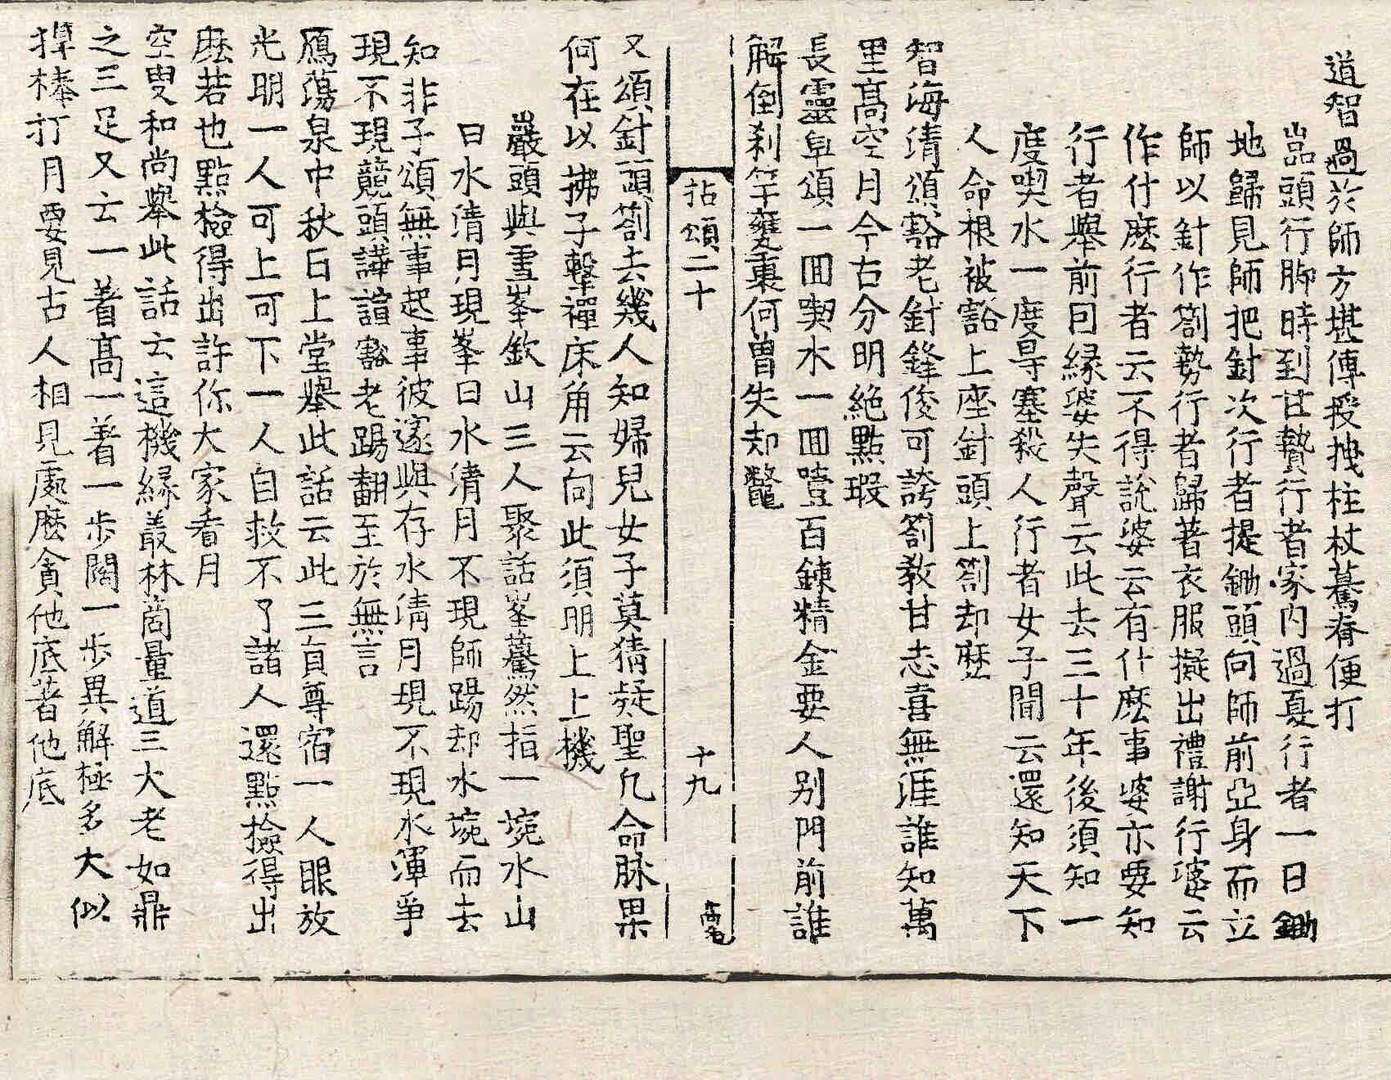 道智過於師方堪傳授拽柱杖驀脊便打
嵓頭行脚時到甘贄行者家內過夏行者一日鋤
地歸見師把針次行者提鋤頭向師前亞身而立
師以針作劄勢行者歸著衣服擬出禮謝行婆云
作什麽行者云不得說婆云有什麽事婆亦要知
行者舉前因緣婆失聲云此去三十年後須知一
度喫水一度㝵塞殺人行者女子聞云還知天下
人命根被豁上座針頭上劄却麽
智海清頌豁老針鋒俊可誇劄敎甘志喜無涯誰知萬
里高空月今古分明絶點瑕
長靈卓頌一回喫水一回噎百鍊精金要人别門前誰
解倒刹竿甕裏何曾失却鼈
拈頌二十 十九
又頌針頭劄去幾人知婦兒女子莫猜疑聖凡命脉果
何在以拂子擊禪床角云向此須明上上機
巖頭與雪峯欽山三人聚話峯驀然指一埦水山
曰水淸月現峯曰水淸月不現師踢却水埦而去
知非子頌無事起事彼邃與存水淸月現不現水渾爭
現不現競頭譁諠豁老踢翻至於無言
鴈蕩泉中秋日上堂擧此話云此三員尊宿一人眼放
光明一人可上可下一人自救不了諸人還點檢得出
麽若也點檢得出許你大家看月
空叟和尚擧此話云這機緣叢林啇量道三大老如鼎
之三足又云一著高一著一步闊一步異解極多大似
掉棒打月要見古人相見處麽貪他底著他底